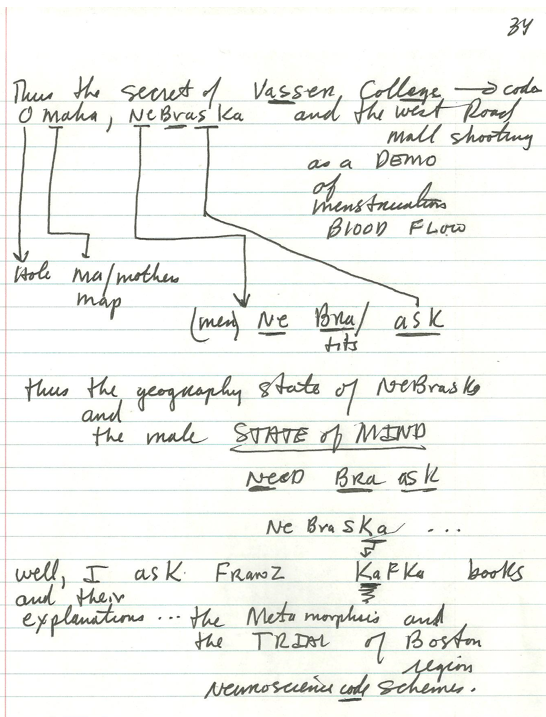 34
Thus the secret of Vasser College → code
Omaha, NeBraska and the West Road
mall shooting
as a DEMO
of
menstruation
BLOOD FLOW
Hole Ma/mothers
map
(men) Ne Bra/ ask
tits
thus the geography state of NeBraska
and
the male STATE of MIND
NeeD Bra ask
Ne BraSKa ...
well, I ask FRanZ KaFKa books
and their
explanations ... the Metamorphis and
the TRIAL of Boston
region
Neuroscience code schemes.